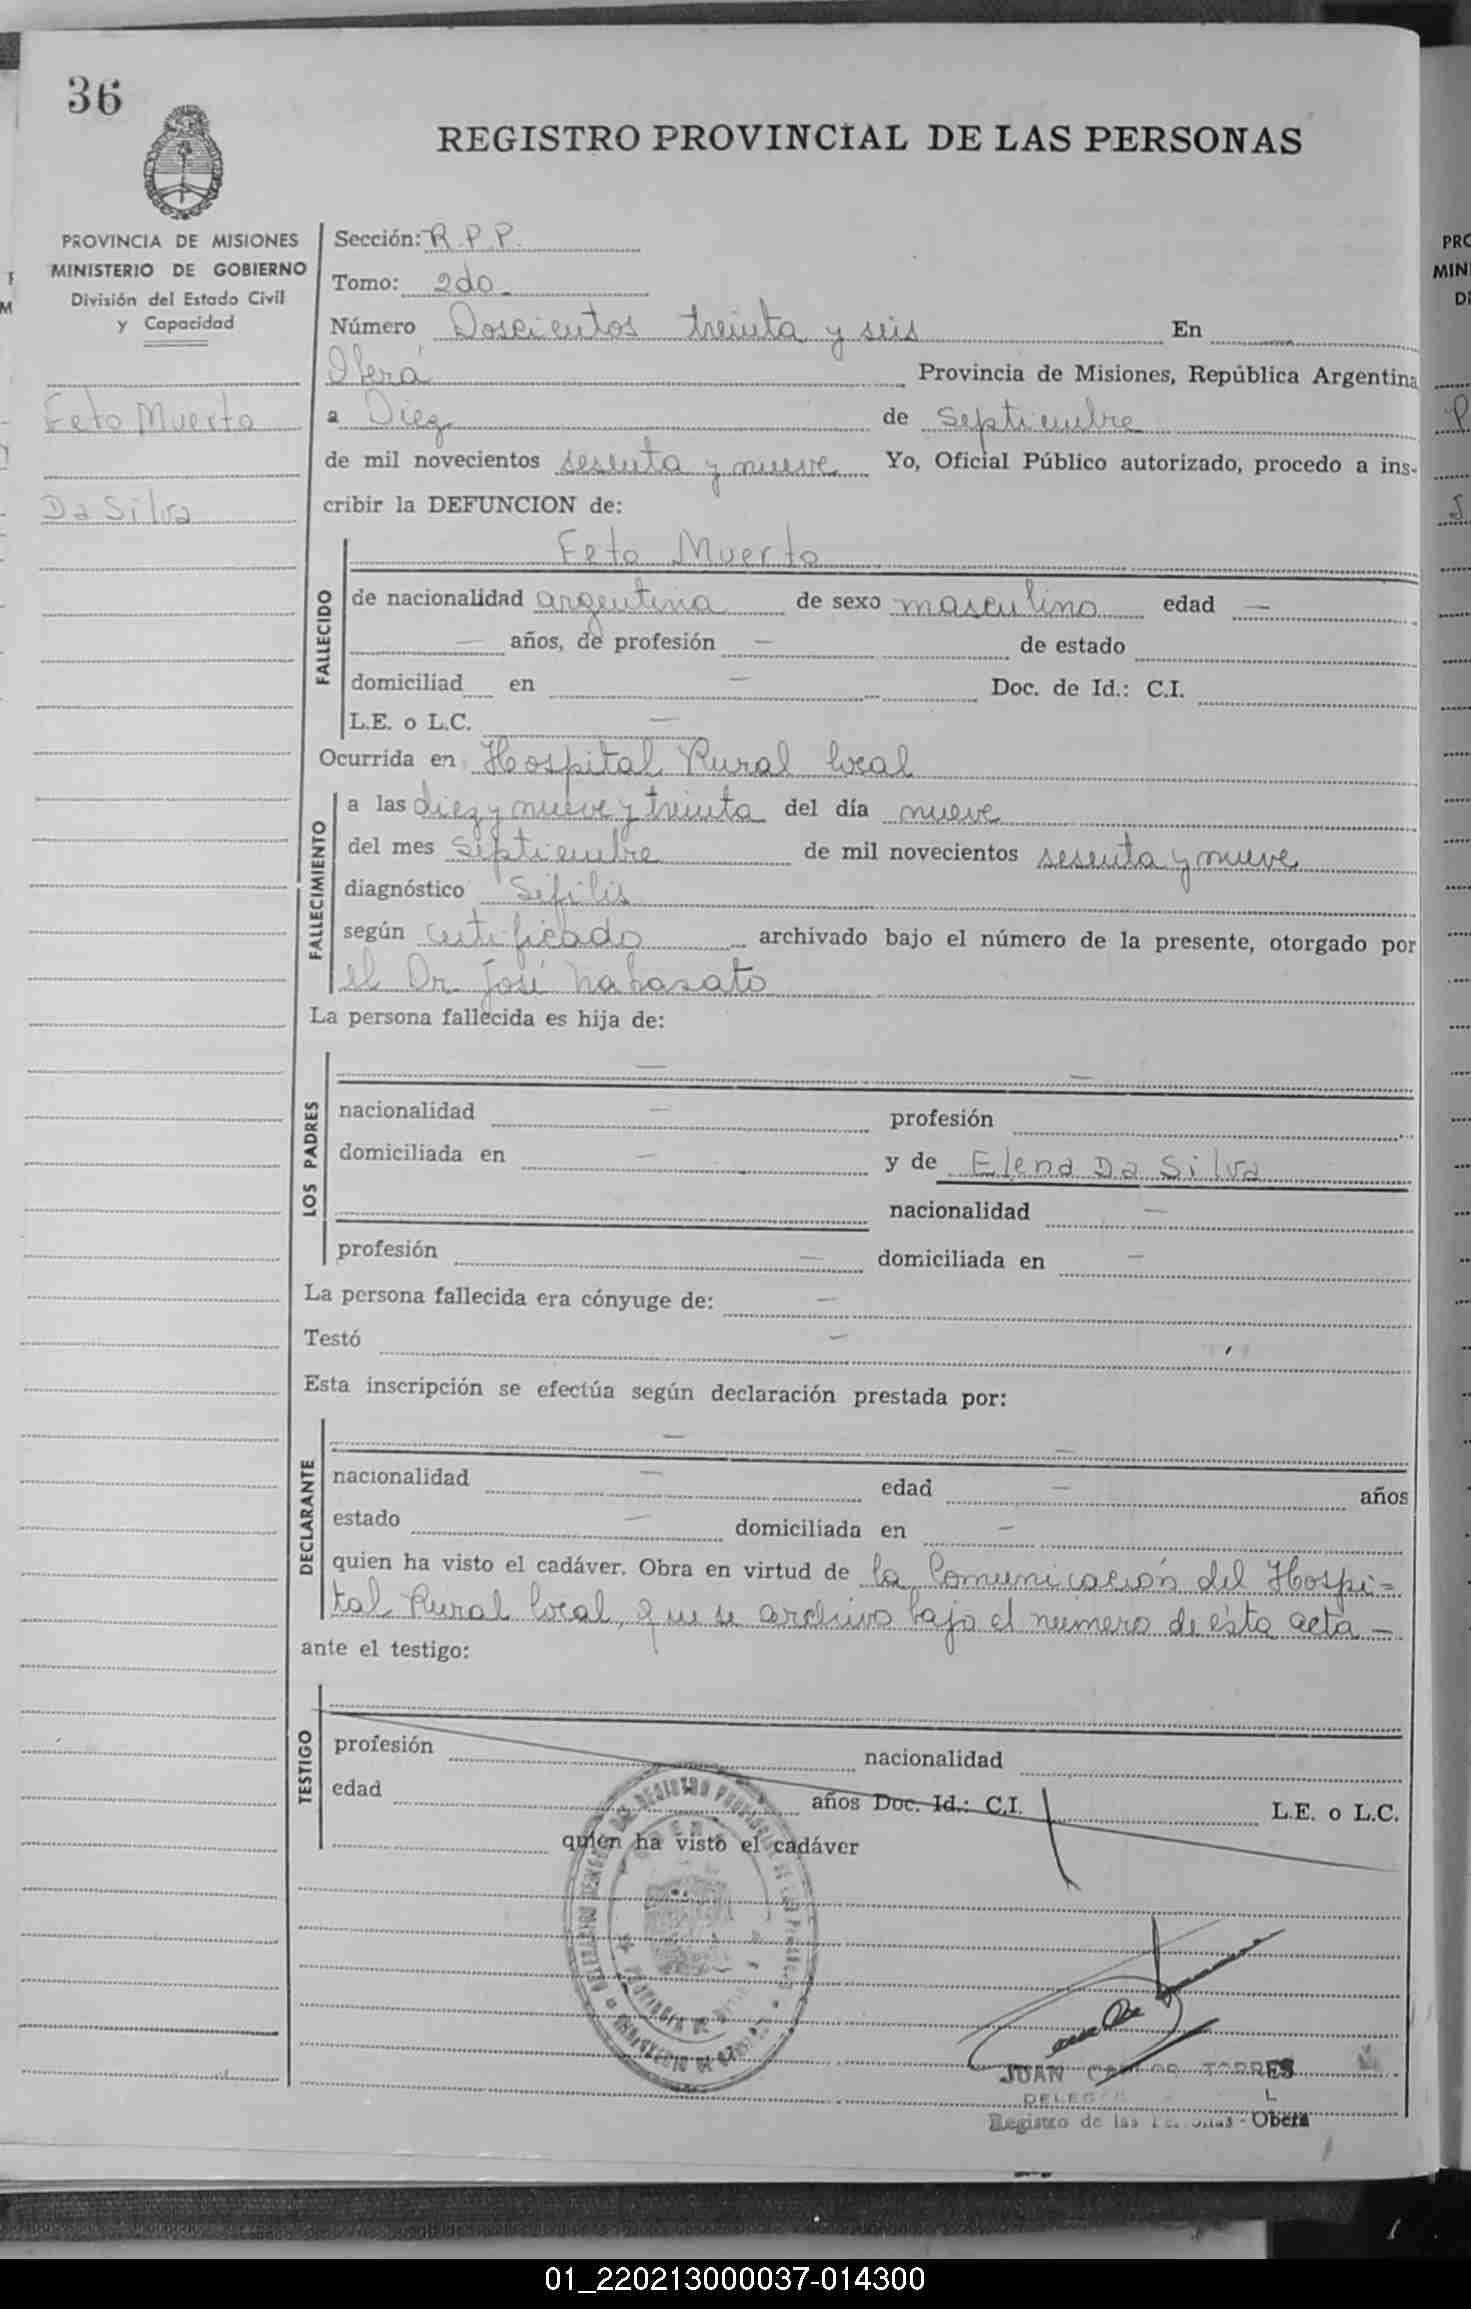 36
REGISTRO PROVINCIAL DE LAS PERSONAS
PROVINCIA DE MISIONES
MINISTERIO DE GOBIERNO
División del Estado Civil
y Capacidad
Feto Muerto
Da Silva
Sección: R.P.P.
Tomo: 2do
Número Doscientos treinta y seis En
Oberá Provincia de Misiones, República Argentina
a Diez de Septiembre
de mil novecientos sesenta y nueve Yo, Oficial Público autorizado, procedo a ins-
cribir la DEFUNCION de:
FALLECIDO
Feto Muerto
de nacionalidad argentina de sexo masculino edad —
— años, de profesión — de estado
domiciliad en — Doc. de Id.: C.I.
L.E. o L.C. —
Ocurrida en Hospital Rural local
FALLECIMIENTO
a las diez y nueve y treinta del día nueve
del mes Septiembre de mil novecientos sesenta y nueve
diagnóstico Sífilis
según certificado archivado bajo el número de la presente, otorgado por
el Dr José
La persona fallecida es hija de:
LOS PADRES
— —
nacionalidad — profesión
domiciliada en — y de Elena Da Silva
nacionalidad —
profesión — domiciliada en —
La persona fallecida era cónyuge de: —
Testó —
Esta inscripción se efectúa según declaración prestada por:
DECLARANTE
— —
nacionalidad — edad — años
estado — domiciliada en —
quien ha visto el cadáver. Obra en virtud de la Comunicación del Hospi=
tal Rural local, que se archiva bajo el número de ésta acta —
ante el testigo:
TESTIGO
profesión nacionalidad
edad años Doc. Id.: C.I. L.E. o L.C.
quien ha visto el cadáver
JUAN CARLOS TORRES
Registro de las Personas - Oberá
01_220213000037-014300